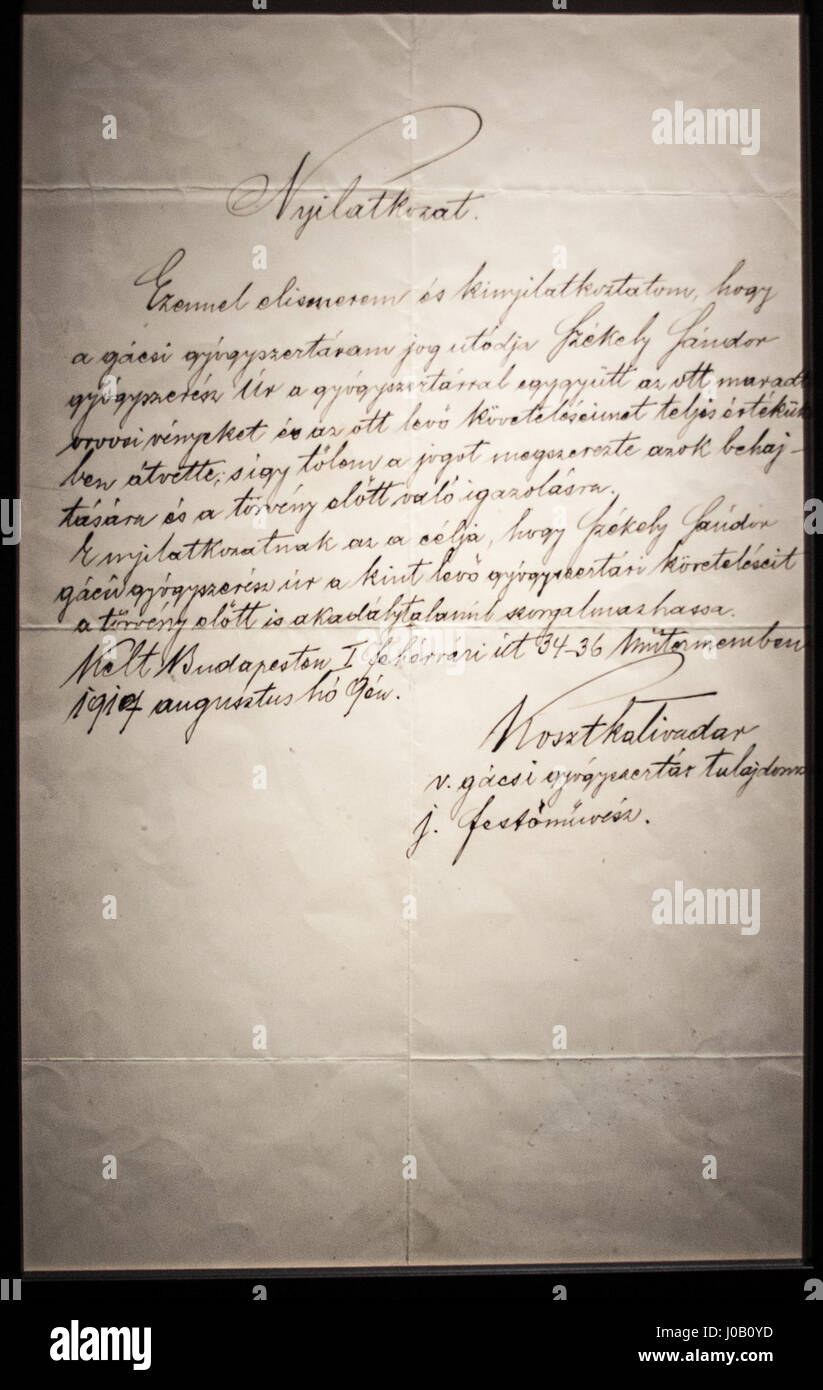 Nyilatkozat.
Ezennel elismerem és kinyilatkoztatom, hogy
a gácsi gyógyszertáram jog utódja Székely Sándor
gyógyszerész Úr a gyógyszertárral egygyütt az ott maradt
orvosi vényeket és az ott levő követeléseimet teljes értékük
ben átvette, s így tőlem a jogot megszerezte azok behaj-
tására és a törvény előtt való igazolásra.
E nyilatkozatnak az a célja, hogy Székely Sándor
gácsi gyógyszerész úr a kint levő gyógyszertári követeléseit
a törvény előtt is akadálytalanúl szorgalmazhassa.
Kelt Budapesten I fehérvári út 34-36 Műtermemben
augusztus hó 9én.
Kosztka Tivadar
v. gácsi gyógyszertár tulajdonos
j. festőművész.
alamy
alamy
alamy
alamy
alamy
a
a
a
a
a
a
a
a
alamy
Image ID: J0B0YD
www.alamy.com